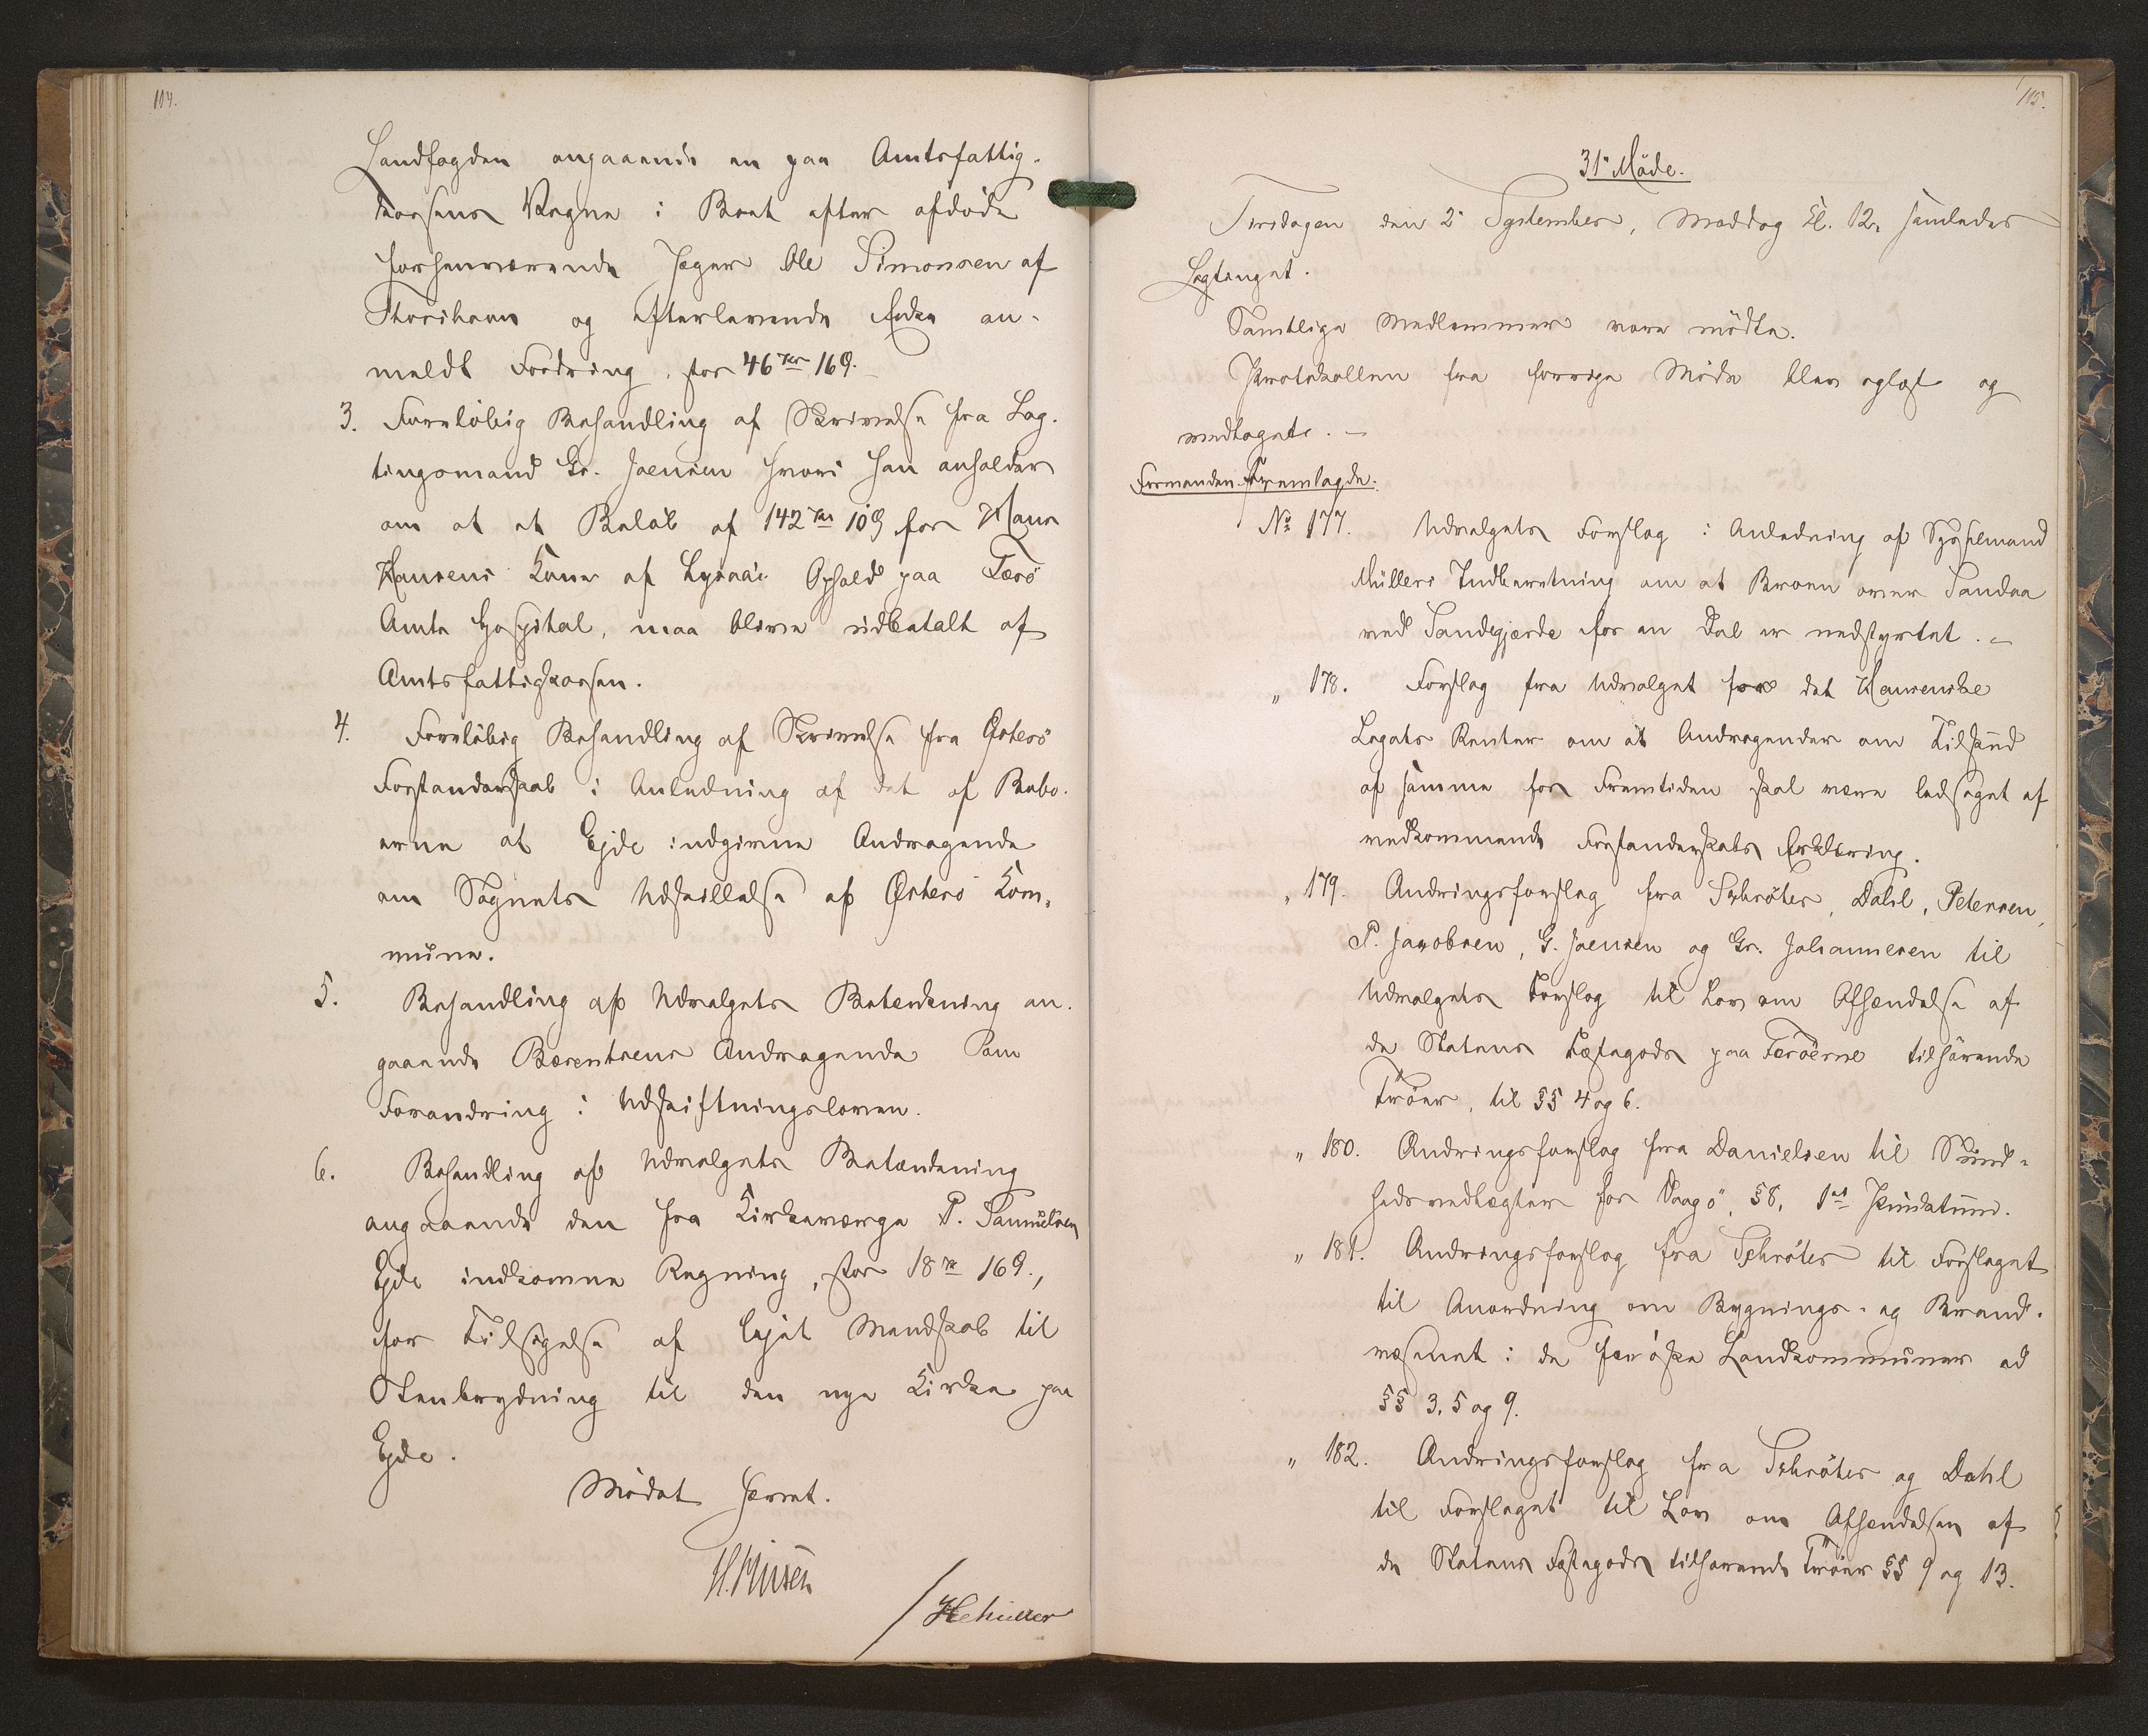 114.
Landfogden angaaende en paa Amtsfattig-
kassens Vegne i Boet efter afdøde
forhenværende Jæger Ole Simonsen af
Thorshavn og efterlevende Enke an-
meldt Fordring, stor 46 Kr 16 Ø.
3. Foreløbig Behandling af Skrivelse fra Lag-
tingsmand Gr. Joensen hvori han anholder
om at et Beløb af 142 Kr 10 Ø for Hans
Hansens Kones af Lysaa's Ophold paa Færø
Amts Hospital, maa blive udbetalt af
Amtsfattigkassen.
4. Foreløbig Behandling af Skrivelse fra Østerø
Forstanderskab i Anledning af det af Bebo-
erne af Ejde indgivne Andragende
om Sognets Udskillelse af Østerø Kom-
mune.
5. Behandling af Udvalgets Betænkning an-
gaaende Bærentsens Andragende om
Forandring i Udskiftningsloven.
6. Behandling af Udvalgets Betænkning
angaaende den fra Kirkeværge P. Samuelsen
Ejde indkomne Regning, stor 18 Kr 16 Ø.,
for Tilsigelse af lejet Mandskab til
Stenbrydning til den nye Kirke paa
Ejde.
Mødet hævet.
115.
31te Møde.
Tirsdagen den 2den September, Middag Kl. 12, samledes
Lagtinget.
Samtlige Medlemmer vare mødte.
Protokollen fra forrige Møde blev oplæst og
vedtaget. —
Formanden fremlagde.
No 177. Udvalgets Forslag i Anledning af Sysselmand
Müllers Indberetning om at Broen over Sandaa
ved Sandgjærde for en Del er nedstyrtet. —
„ 178. Forslag fra Udvalget for det Hansenske
Legats Renter om at Andragender om Tilskud
af samme for Fremtiden skal være ledsaget af
vedkommende Forstanderskabs Erklæring.
„ 179. Ændringsforslag fra Schrøter, Dahl, Petersen,
P. Jacobsen, G. Joensen og Gr. Johannesen til
Udvalgets Forslag til Lov om Afhændelse af
de Statens Fæstegods paa Færøerne tilhørende
Trøer, til §§ 4 og 6.
„ 180. Ændringsforslag fra Danielsen til Sund-
hedsvedtægter for Vaagø, § 8, 1st Punktum.
„ 181. Ændringsforslag fra Schrøter til Forslaget
til Anordning om Bygnings- og Brand-
væsenet i de færøske Landkommuner ad
§§ 3, 5 og 9.
„ 182. Ændringsforslag fra Schrøter og Dahl
til Forslaget til Lov om Afhændelsen af
de Statens Fæstegods tilhørende Trøer §§ 9 og 13.